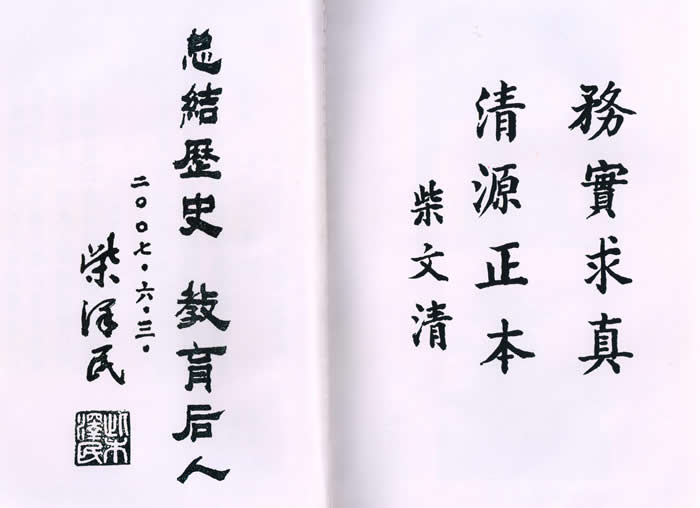 務實求真
清源正本
柴文清
总結歷史 教育后人
二〇〇七·六·三·
柴泽民
柴澤民